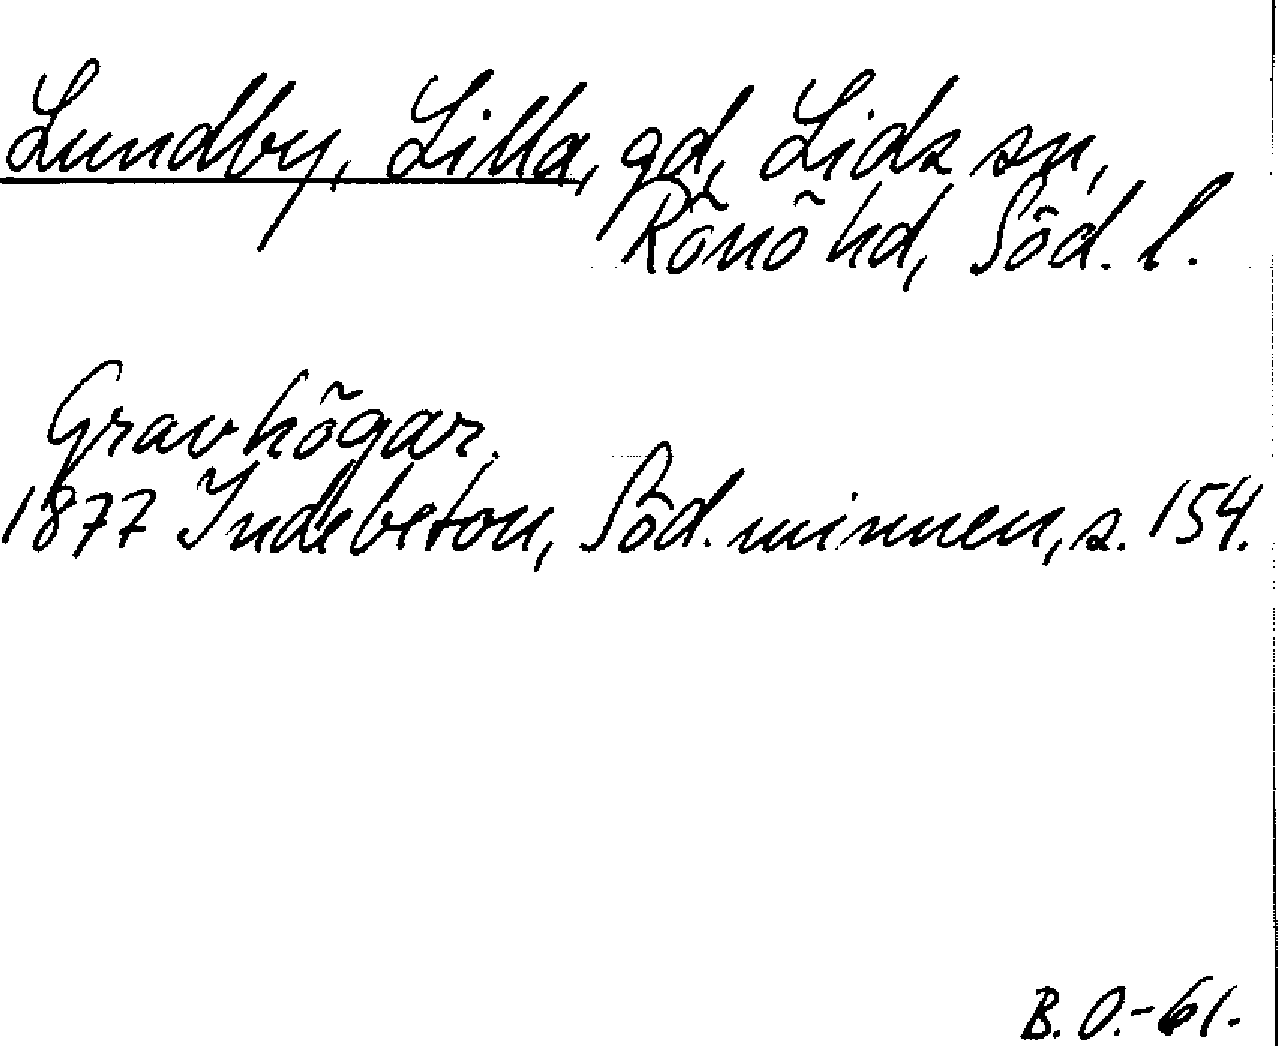 Lundby, Lilla, gd, Lids sn,
Rönö hd, Söd. l.
Gravhögar.
1877 Indebetou, Söd. minnen, s. 154.
B. O.-61.